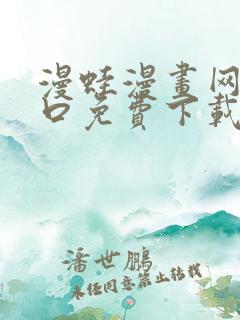 漫蛙漫畫网
口免費下載
潘世鵬
未经同意禁止转载